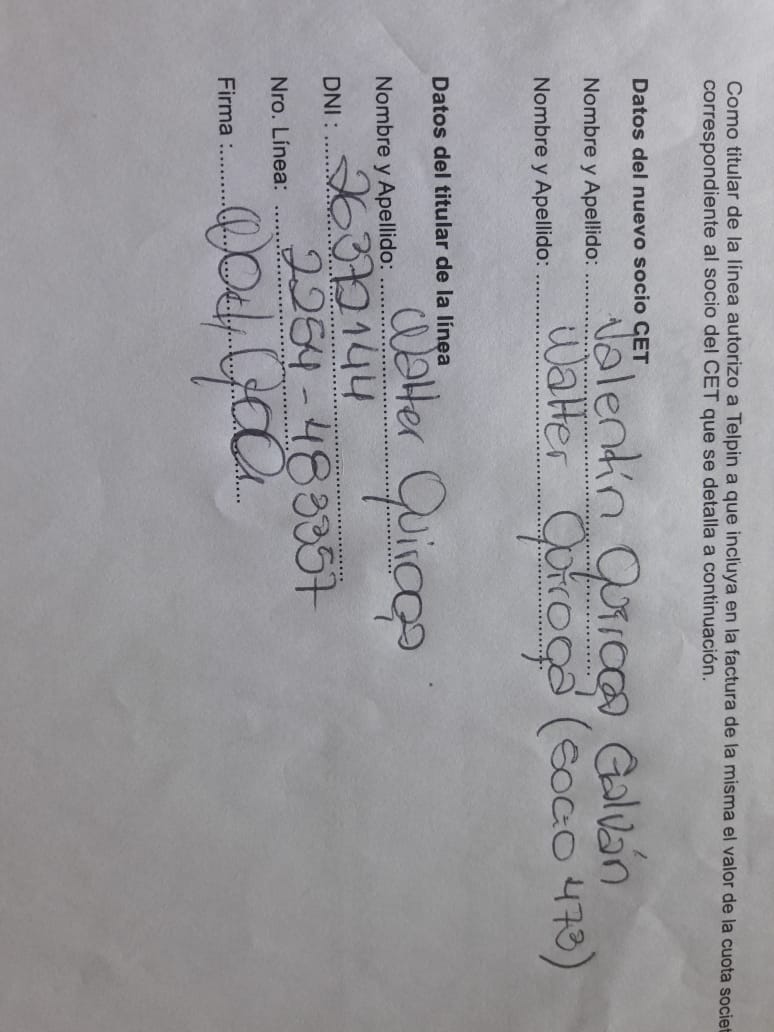 Como titular de la línea autorizo a Telpin a que incluya en la factura de la misma el valor de la cuota societ
correspondiente al socio del CET que se detalla a continuación.
Datos del nuevo socio CET
Nombre y Apellido: Valentín Quiroga Galván
Nombre y Apellido: Walter Quiroga (socio 473)
Datos del titular de la línea
Nombre y Apellido: Walter Quiroga
DNI : 26372144
Nro. Línea: 2254-483357
Firma :